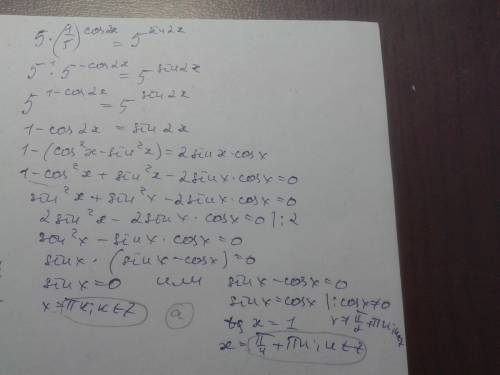 5·(1/5)^cos2x = 5^sin2x
5^1·5^-cos2x = 5^sin2x
5^1-cos2x = 5^sin2x
1-cos2x = sin2x
1-(cos²x-sin²x)=2sinx·cosx
1-cos²x+sin²x-2sinx·cosx=0
sin²x+sin²x-2sinx·cosx=0
2sin²x-2sinx·cosx=0 |:2
sin²x-sinx·cosx=0
sinx·(sinx-cosx)=0
sinx=0 или sinx-cosx=0
x=πk; k∈Z sinx=cosx |:cosx≠0
а) tg x=1 x≠π/2+πn; n∈Z
x=π/4+πn; n∈Z